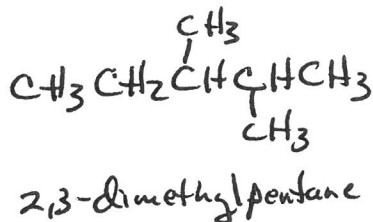 CH3
CH3 CH2 CH CHCH3
CH3
2,3-dimethylpentane